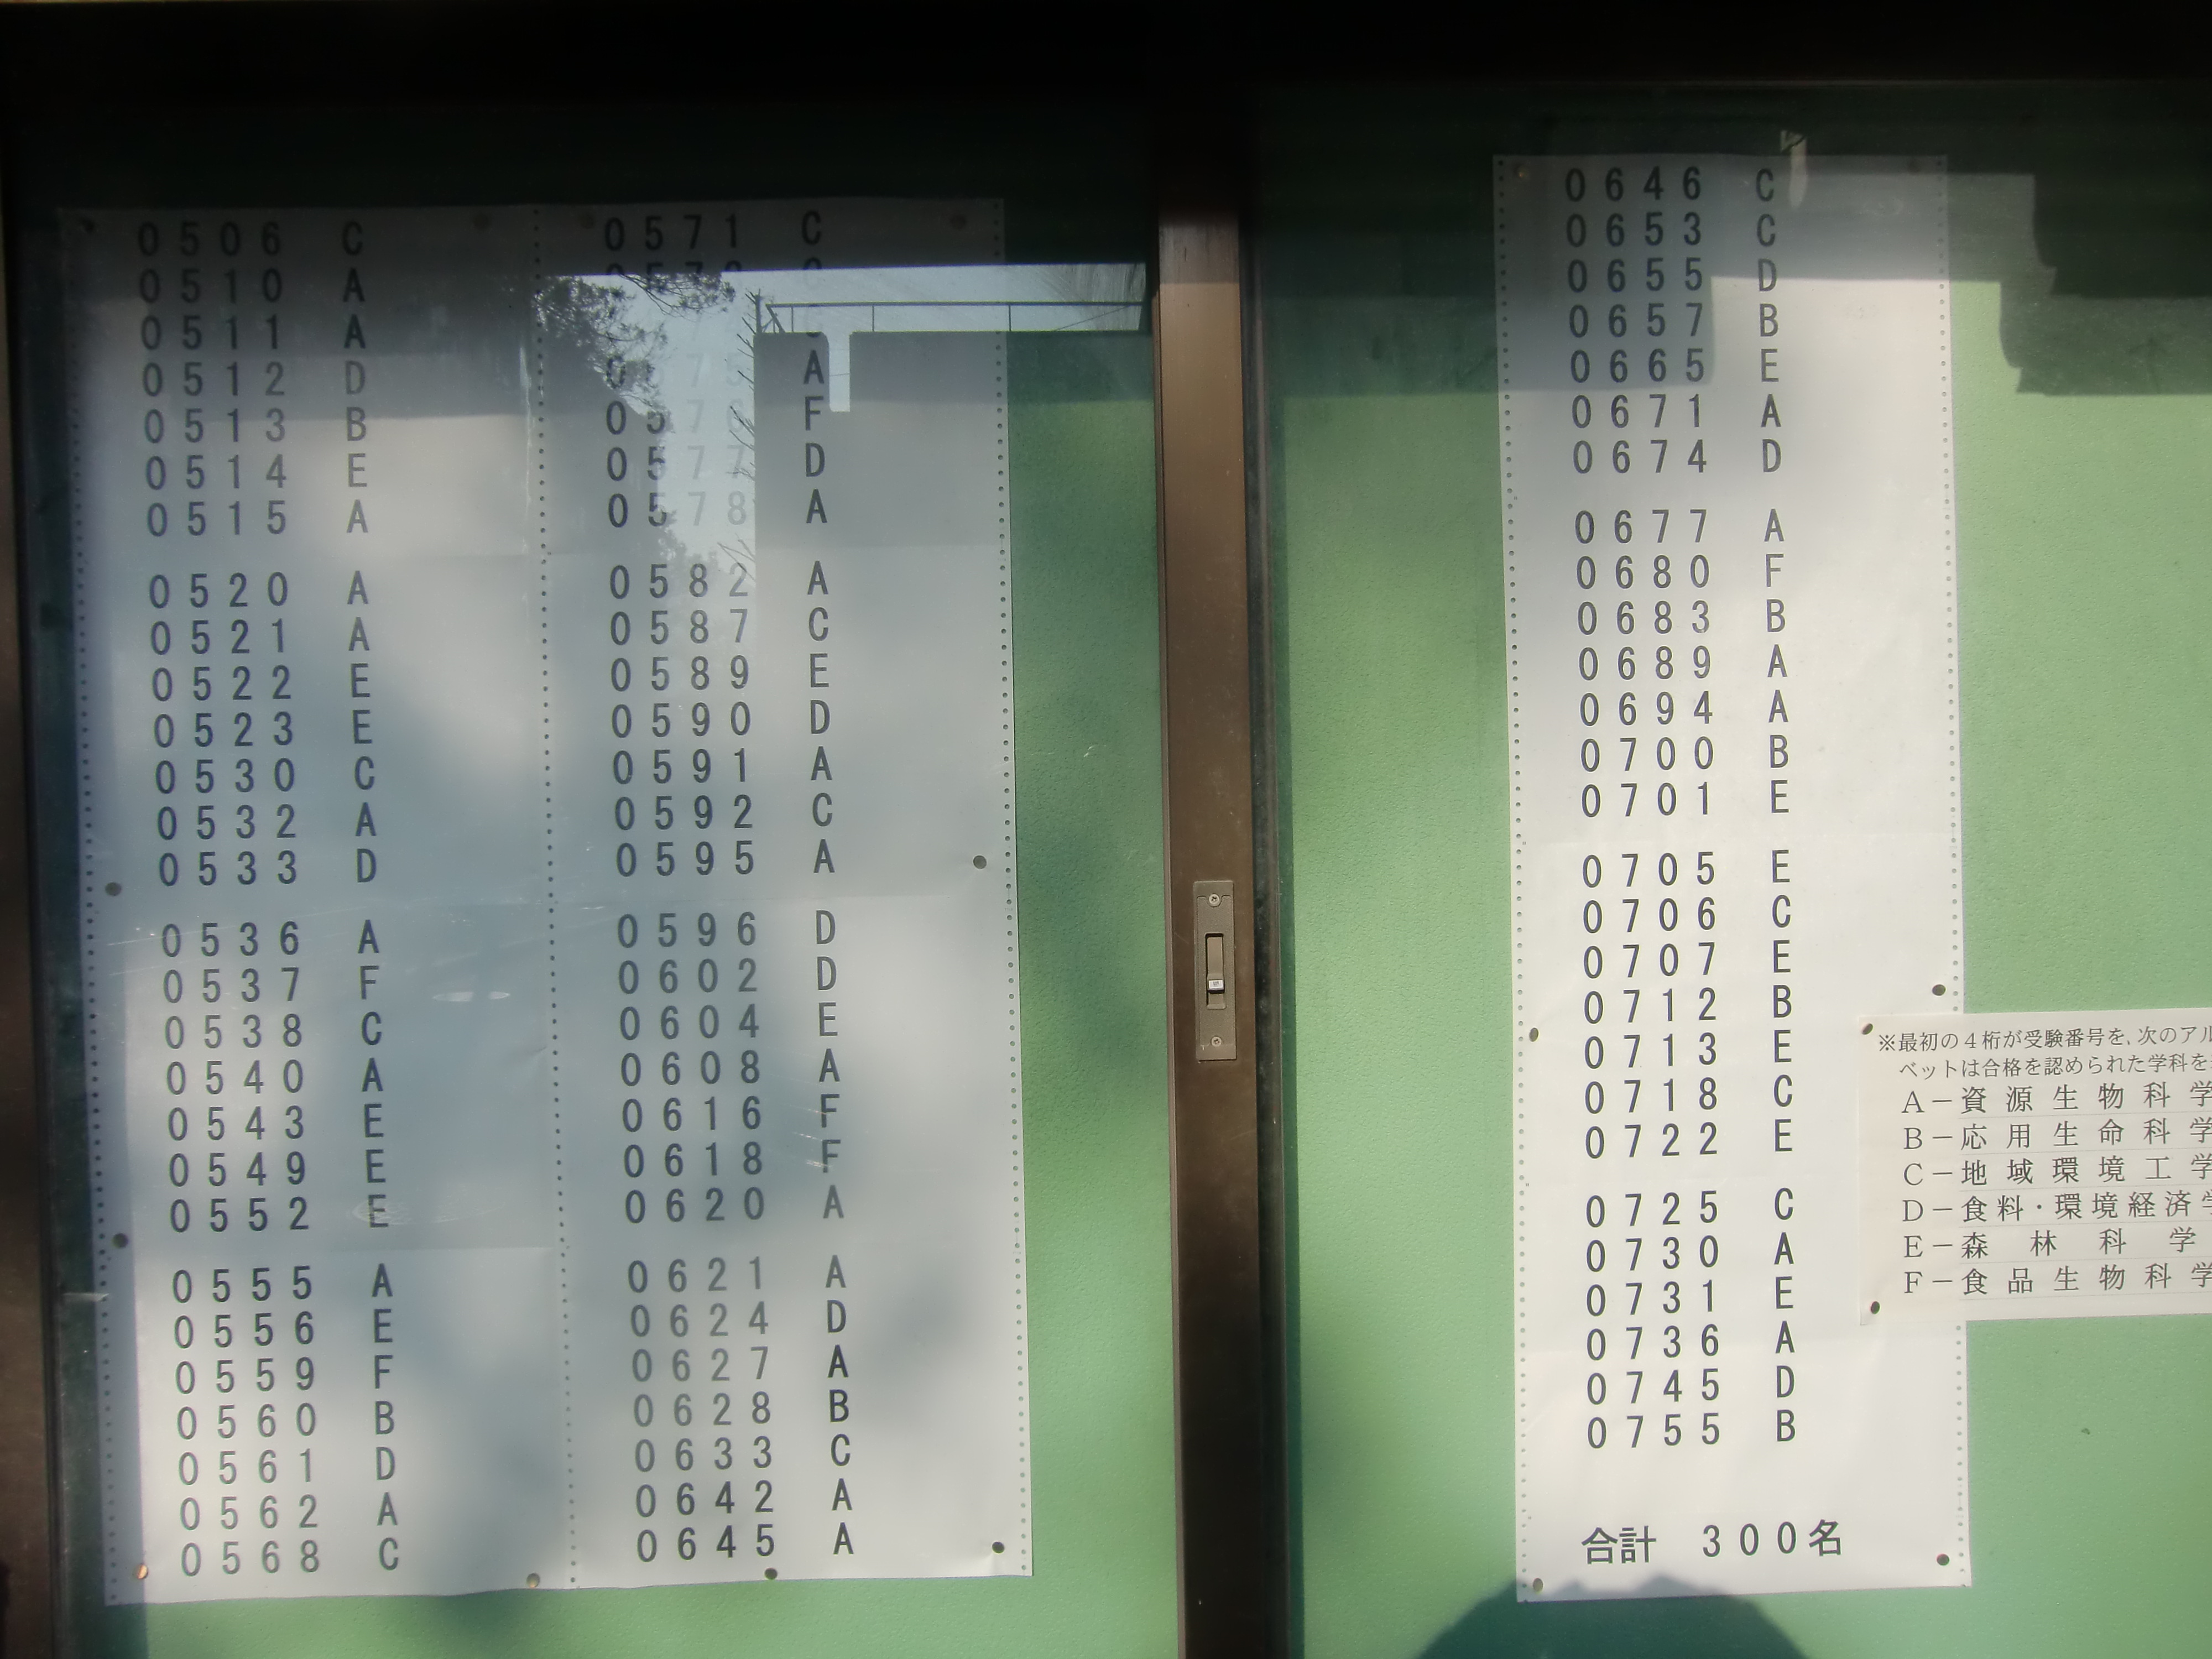 0506 C
0510 A
0511 A
0512 D
0513 B
0514 E
0515 A
0520 A
0521 A
0522 E
0523 E
0530 C
0532 A
0533 D
0536 A
0537 F
0538 C
0540 A
0543 E
0549 E
0552 E
0555 A
0556 E
0559 F
0560 B
0561 D
0562 A
0568 C
0571 C
A
0576 F
0577 D
0578 A
0582 A
0587 C
0589 E
0590 D
0591 A
0592 C
0595 A
0596 D
0602 D
0604 E
0608 A
0616 F
0618 F
0620 A
0621 A
0624 D
0627 A
0628 B
0633 C
0642 A
0645 A
0646 C
0653 C
0655 D
0657 B
0665 E
0671 A
0674 D
0677 A
0680 F
0683 B
0689 A
0694 A
0700 B
0701 E
0705 E
0706 C
0707 E
0712 B
0713 E
0718 C
0722 E
0725 C
0730 A
0731 E
0736 A
0745 D
0755 B
合計 300名
※最初の4桁が受験番号を、次のアル
ベットは合格を認められた学科を
A－資源生物科学
B－応用生命科学
C－地域環境工学
D－食料・環境経済学
E－森林科学
F－食品生物科学